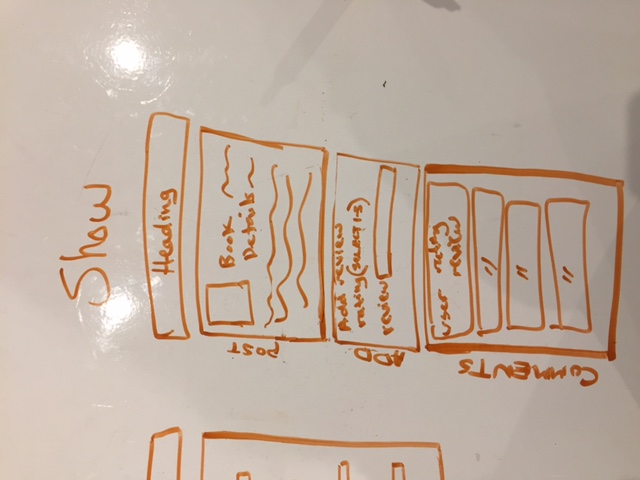 Show
Heading
POST
Book
Details
ADD
Add review
rating (select 1-5)
review
COMMENTS
user rating
review
"
"
"